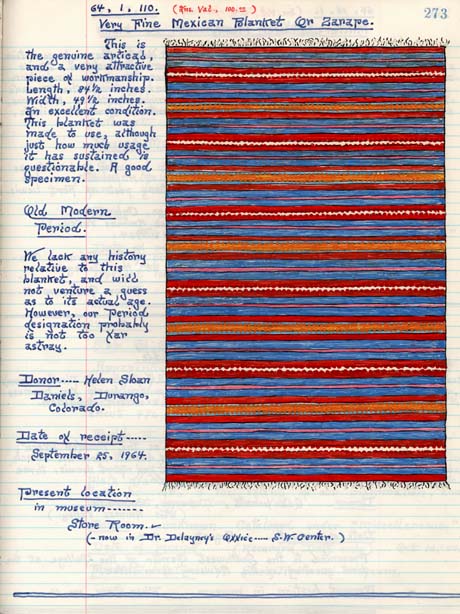 64, 1, 110. (Ins. Val., 100.00)
273
Very Fine Mexican Blanket Or Sarape.
This is
the genuine artical,
and a very attractive
piece of workmanship.
Length, 84½ inches.
Width, 49½ inches.
In excellent condition.
This blanket was
made to use, although
just how much usage
it has sustained is
questionable. A good
specimen.
Old Modern
Period.
We lack any history
relative to this
blanket, and will
not venture a guess
as to its actual age.
However, our Period
designation probably
is not too far
astray.
Donor----- Helen Sloan
Daniels, Durango,
Colorado.
Date of receipt-----
September 25, 1964.
Present location
in museum-------
Store Room.
(- now in Dr. Delayney's office----- S.W. Center. )